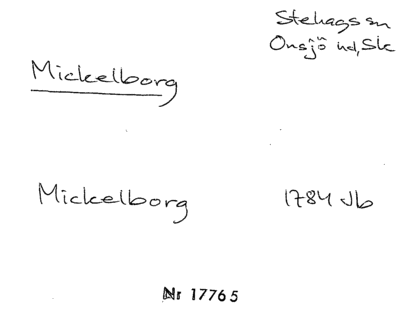 Stehags sn
Onsjö hd, Sk
Mickelborg
Mickelborg 1784 Jb
Nr 17765